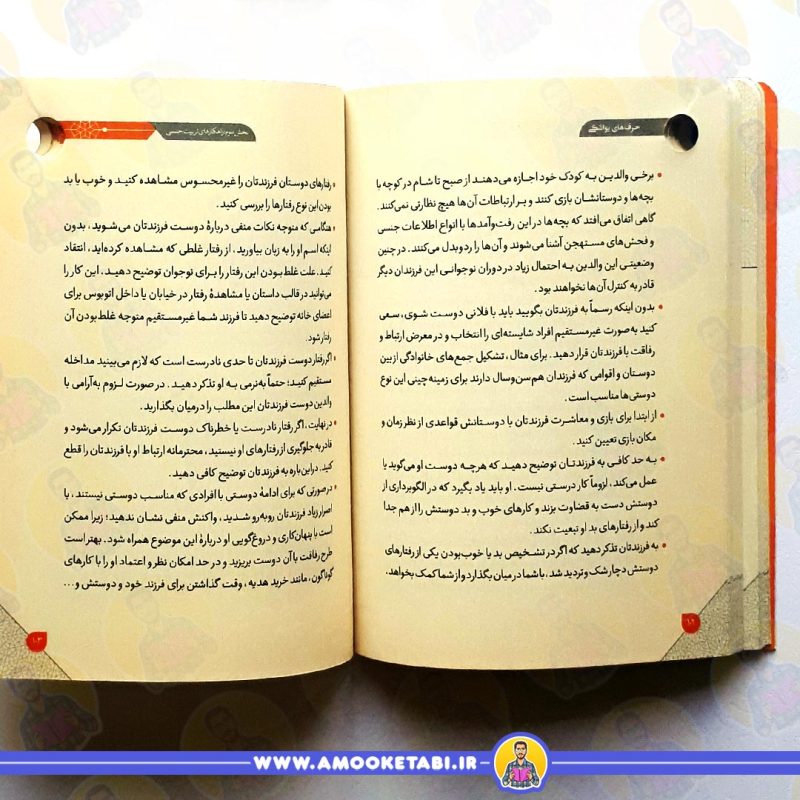 حرف‌های یواشکی
• برخی والدین به کودک خود اجازه می‌دهند از صبح تا شام در کوچه با
بچه‌ها و دوستانشان بازی کنند و بر ارتباطات آن‌ها هیچ نظارتی نمی‌کنند.
گاهی اتفاق می‌افتد که بچه‌ها در این رفت‌وآمدها با انواع اطلاعات جنسی
و فحش‌های مستهجن آشنا می‌شوند و آن‌ها را ردوبدل می‌کنند. در چنین
وضعیتی این والدین به احتمال زیاد در دوران نوجوانی این فرزندان دیگر
قادر به کنترل آن‌ها نخواهند بود.
• بدون اینکه رسماً به فرزندتان بگویید باید با فلانی دوست شوی، سعی
کنید به‌صورت غیرمستقیم افراد شایسته‌ای را انتخاب و در معرض ارتباط و
رفاقت با فرزندتان قرار دهید. برای مثال، تشکیل جمع‌های خانوادگی از بین
دوستان و اقوامی که فرزندان هم‌سن‌وسال دارند برای زمینه‌چینی این نوع
دوستی‌ها مناسب است.
• از ابتدا برای بازی و معاشرت فرزندتان با دوستانش قواعدی از نظر زمان و
مکان بازی تعیین کنید.
• به حد کافی به فرزندتان توضیح دهید که هرچه دوست او می‌گوید یا
عمل می‌کند، لزوماً کار درستی نیست. او باید یاد بگیرد که در الگوبرداری از
دوستش دست به قضاوت بزند و کارهای خوب و بد دوستش را از هم جدا
کند و از رفتارهای بد او تبعیت نکند.
• به فرزندتان تذکر دهید که اگر در تشخیص بد یا خوب‌بودن یکی از رفتارهای
دوستش دچار شک و تردید شد، با شما در میان بگذارد و از شما کمک بخواهد.
۱۰۲
بخش سوم: راهکارهای تربیت جنسی
• رفتارهای دوستان فرزندتان را غیرمحسوس مشاهده کنید و خوب یا بد
بودن این نوع رفتارها را بررسی کنید.
• هنگامی که متوجه نکات منفی دربارهٔ دوست فرزندتان می‌شوید، بدون
اینکه اسم او را به زبان بیاورید، از رفتار غلطی که مشاهده کرده‌اید، انتقاد
کنید. علت غلط بودن این رفتار را برای نوجوان توضیح دهید. این کار را
می‌توانید در قالب داستان یا مشاهدهٔ رفتار در خیابان یا داخل اتوبوس برای
اعضای خانه توضیح دهید تا فرزند شما غیرمستقیم متوجه غلط بودن آن
رفتار شود.
• اگر رفتار دوست فرزندتان تا حدی نادرست است که لازم می‌بینید مداخله
مستقیم کنید؛ حتماً به‌نرمی به او تذکر دهید. در صورت لزوم به‌آرامی با
والدین دوست فرزندتان این مطلب را درمیان بگذارید.
• در نهایت، اگر رفتار نادرست یا خطرناک دوست فرزندتان تکرار می‌شود و
قادر به جلوگیری از رفتارهای او نیستید، محترمانه ارتباط او با فرزندتان را قطع
کنید. دراین‌باره به فرزندتان توضیح کافی دهید.
• درصورتی که برای ادامهٔ دوستی با افرادی که مناسب دوستی نیستند، با
اصرار زیاد فرزندتان روبه‌رو شدید، واکنش منفی نشان ندهید؛ زیرا ممکن
است با پنهان‌کاری و دروغ‌گویی او دربارهٔ این موضوع همراه شود. بهتر است
طرح رفاقت با آن دوست بریزید و در حد امکان نظر و اعتماد او را با کارهای
گوناگون، مانند خرید هدیه، وقت گذاشتن برای فرزند خود و دوستش و...
۱۰۳
WWW.AMOOKETABI.IR